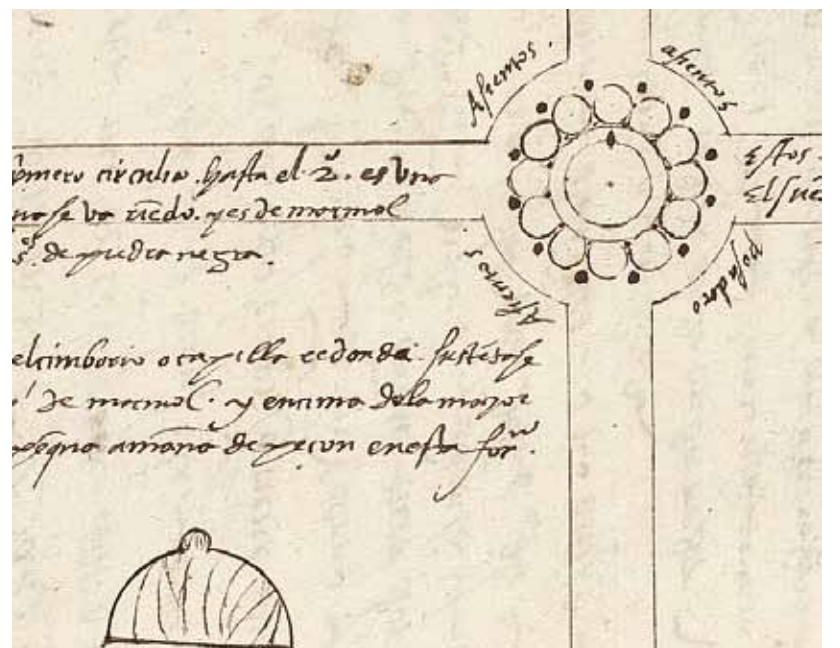 Asientos.
asientos
primero circulo. hasta el 2º. es vna
na se va riēdo. y es de marmol
de piedra negra.
Estos
El sue
Asientos
posadero
el cimborio o capilla redonda. sustētase
de marmol. y encima dela mayor
peq̄na amanā de peçon en esta for